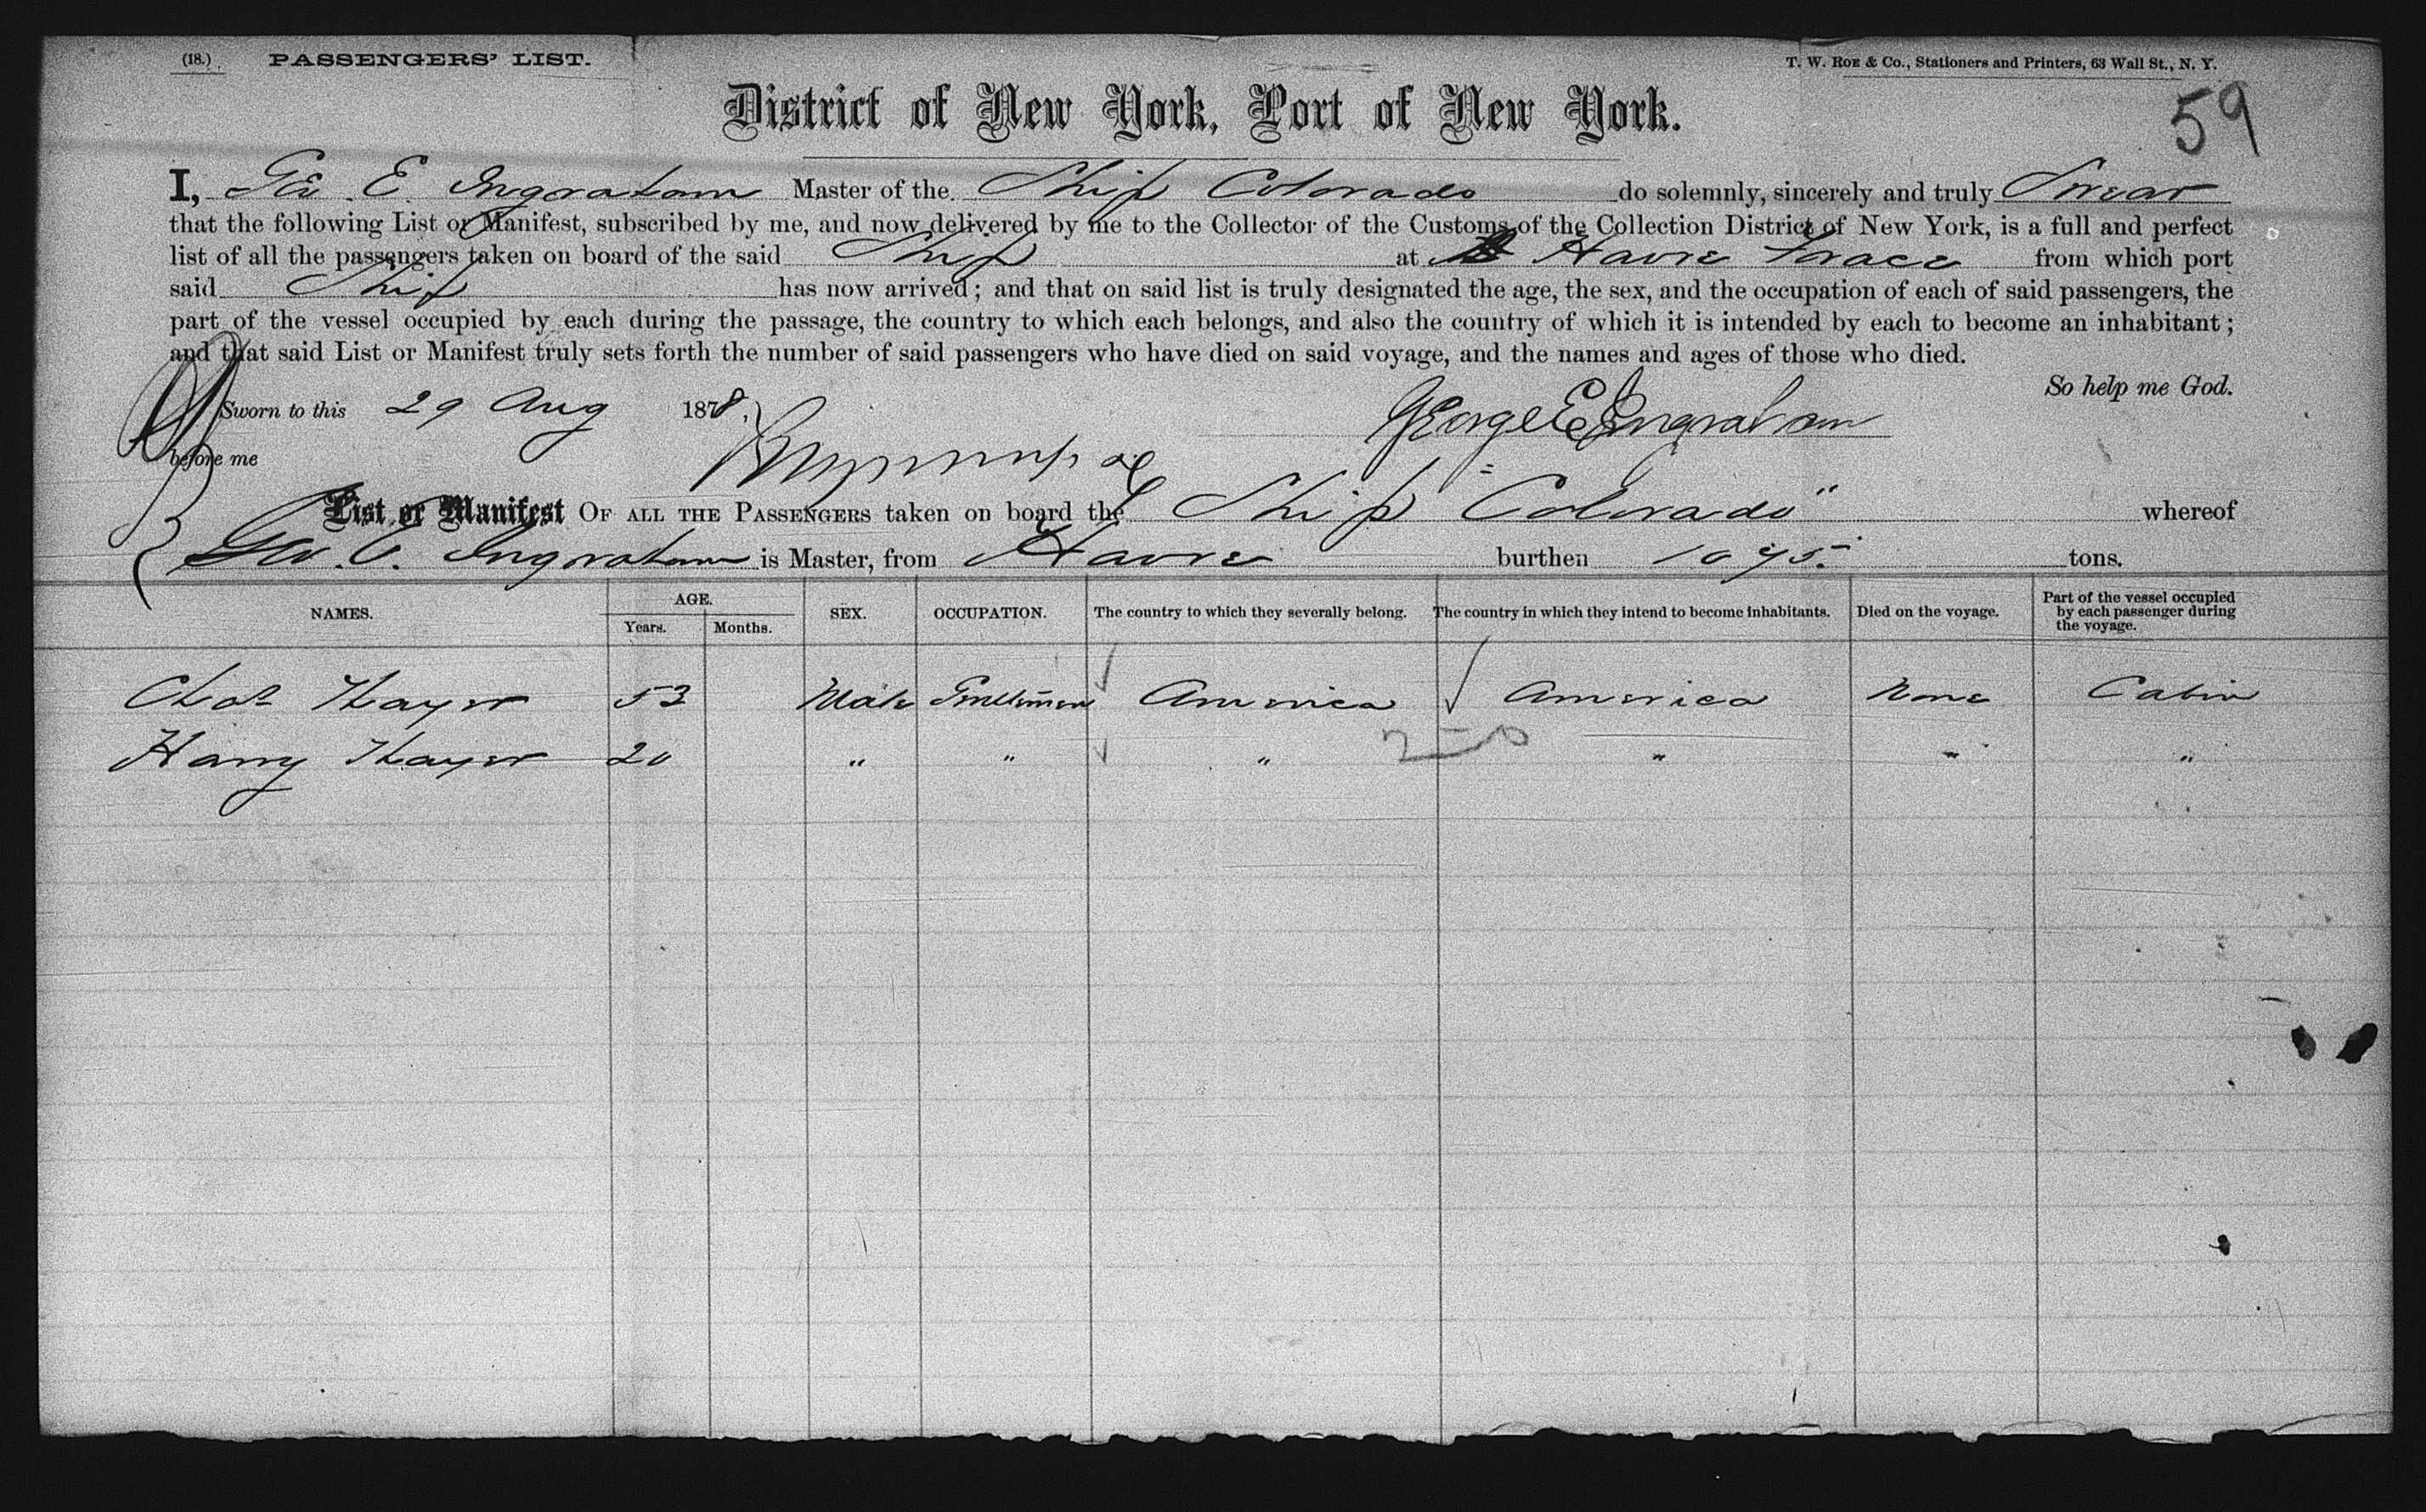 (18.) PASSENGERS' LIST. T. W. ROE & Co., Stationers and Printers, 63 Wall St., N. Y.
District of New York, Port of New York.
59
I, Geo. E. Ingraham Master of the Ship Colorado do solemnly, sincerely and truly Swear
that the following List or Manifest, subscribed by me, and now delivered by me to the Collector of the Customs of the Collection District of New York, is a full and perfect
list of all the passengers taken on board of the said Ship at Havre Grace from which port
said Ship has now arrived; and that on said list is truly designated the age, the sex, and the occupation of each of said passengers, the
part of the vessel occupied by each during the passage, the country to which each belongs, and also the country of which it is intended by each to become an inhabitant;
and that said List or Manifest truly sets forth the number of said passengers who have died on said voyage, and the names and ages of those who died.
So help me God.
Sworn to this 29 Aug 1878. George E Ingraham
before me
List or Manifest OF ALL THE PASSENGERS taken on board the Ship "Colorado" whereof
Geo. E. Ingraham is Master, from Havre burthen 1075 tons.
NAMES. AGE. Years. Months. SEX. OCCUPATION. The country to which they severally belong. The country in which they intend to become inhabitants. Died on the voyage. Part of the vessel occupied by each passenger during the voyage.
Chas Thayer 53 Male Gentlemen America America None Cabin
Harry Thayer 20 " " " " " "